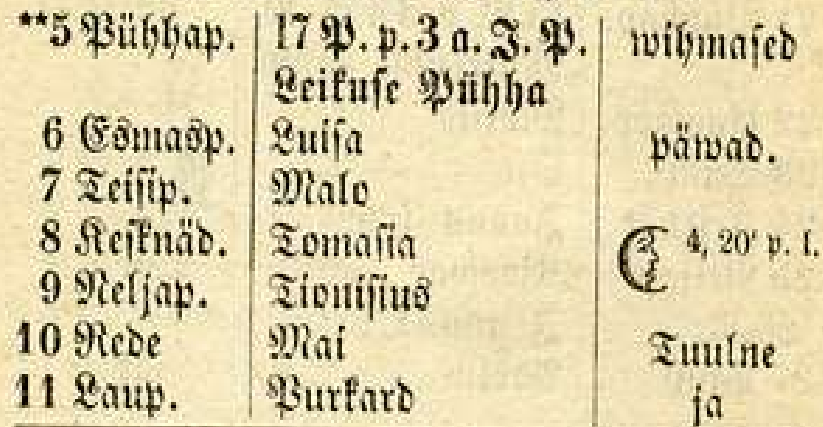 **5 Pühhap. 17 P. p. 3 a. J. P. wihmased
Leikuse Pühha
6 Esmasp. Luisa päwad.
7 Teisip. Malo
8 Kesknäd. Tomasia 4, 20' p. l.
9 Neljap. Tionisius
10 Rede Mai Tuulne
11 Laup. Purkard ja